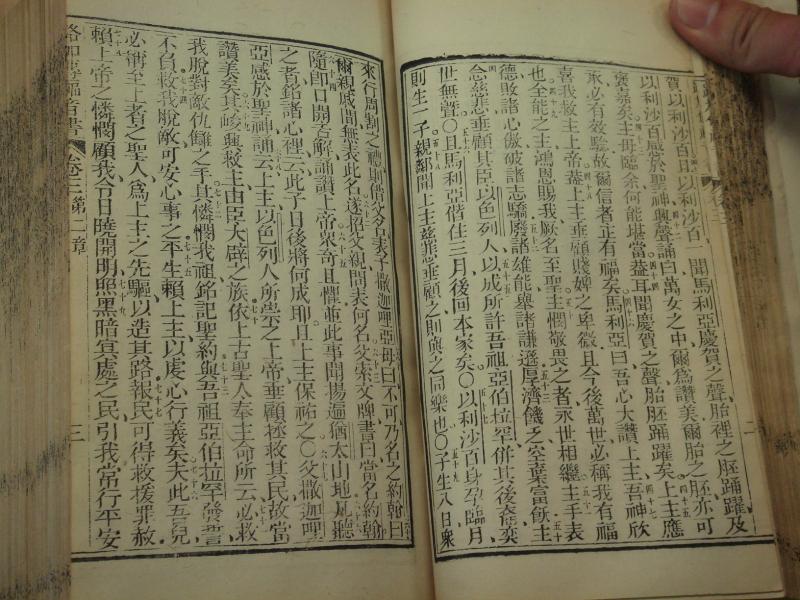 賀以利沙百且以利沙百一聞馬利亞慶賀之聲胎裡之胚踊躍及
以利沙百感於聖神興聲誦曰萬女之中爾為讚美爾胎之胚亦可
褒嘉矣主母臨余何能堪當葢耳聞慶賀之聲胎胚踊躍矣上主應
承必有效驗故爾信者正有福矣馬利亞曰吾心大讚上主吾神欣
喜我救主上帝葢上主垂顧賤婢之卑微且今後萬世必稱我有福
也全能之主鴻恩賜我厥名至聖主憫敬畏之者永世相繼主手表
德敗諸心傲破諸志驕廢諸雄能舉諸謙遜厚濟饑之室葉富飫主
念慈悲垂顧其臣以色列人以成所許吾祖亞伯拉罕併其後裔奕
世無聲〇且馬利亞偕住三月後回本家矣〇以利沙百身孕臨月
則生一子親鄰聞上主慈悲垂顧之則與之同樂也〇子生八日衆
來行周割之禮則偕父名表子撒迦哩亞母曰不可乃名之約翰曰
爾親戚間無表此名遂招父親問表何名父索文牌書曰當名約翰
隨即口開舌解誦讚上帝衆奇且懼並此事開揚遍猶太山地凡聽
之者銘諸心裡云此子日後將何成耶且上主保祐之〇父撒迦哩
亞感於聖神誦云上主以色列人所崇之上帝垂顧拯救其民故當
讚美矣其峻興救主由臣大辟之族依上古聖人奉主命所云必救
我脫對敵仇讎之手其憐憫我祖銘記聖約與吾祖亞伯拉罕發誓
不白救我脫敵可安心事之平生賴上主以虔心行義矣夫此吾兒
必稱至上者之聖人為上主之先驅以造其路報民可得救援罪赦
賴上帝之憐憫顧我今日曉開明照黑暗冥處之民引我常行平安
福音書 卷三第一章 三